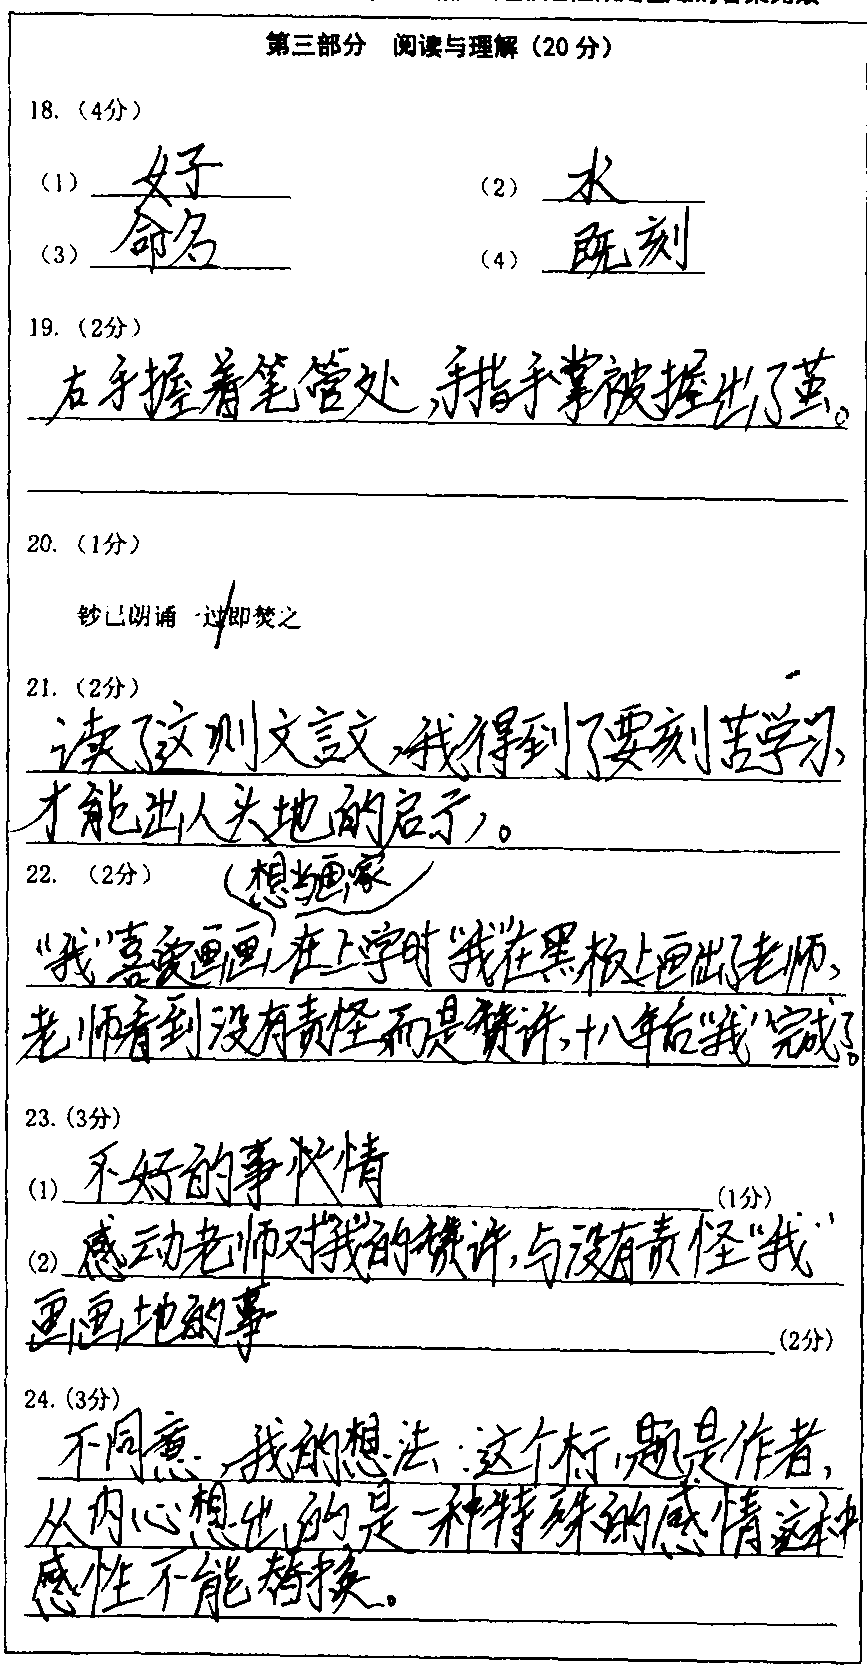 第三部分 阅读与理解（20分）
18.（4分）
（1）好 （2）水
（3）命名 （4）既刻
19.（2分）
右手握着笔管处,手指手掌被握出了茧。
20.（1分）
钞已朗诵一过/即焚之
21.（2分）
读了这则文言文,我得到了要刻苦学习,
才能出人头地的启示。
22.（2分） 想当画家
“我”喜爱画画,在上学时“我”在黑板上画出了老师,
老师看到没有责怪而是赞许,十八年后“我”完成了。
23.(3分)
(1) 不好的事 情 (1分)
(2) 感动老师对“我”的赞许,与没有责怪“我”
画画地的事 (2分)
24.(3分)
不同意,我的想法:这个标题是作者,
从内心想出的是一种特殊的感情这种
感性不能替换。